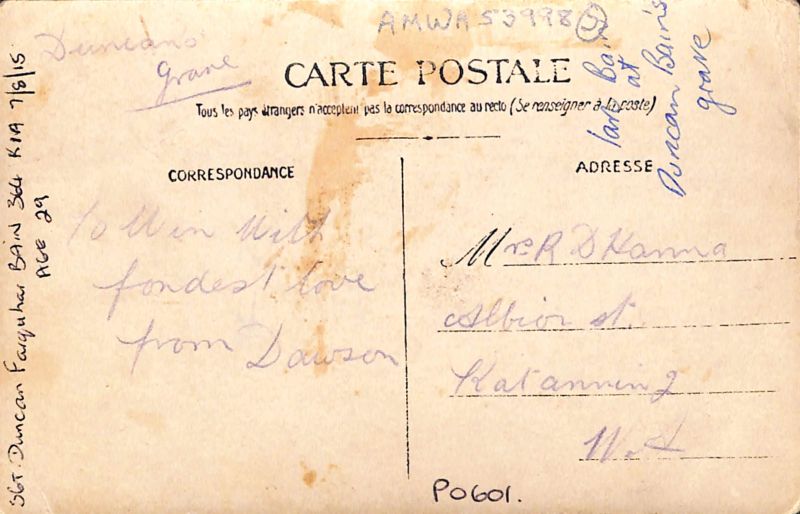 AMWA53998
Duncans
grave
Bain
at
Duncan Bain's
grave
CARTE POSTALE
Tous les pays étrangers n'acceptent pas la correspondance au recto (Se renseigner à la poste)
CORRESPONDANCE
ADRESSE
To Win With
fondest love
from Dawson
Mrs R D Hanna
Albion st.
Katanning
W.A
SGT. Duncan Farquhar BAIN 364 KIA 7/8/15
AGE 29
P0601.